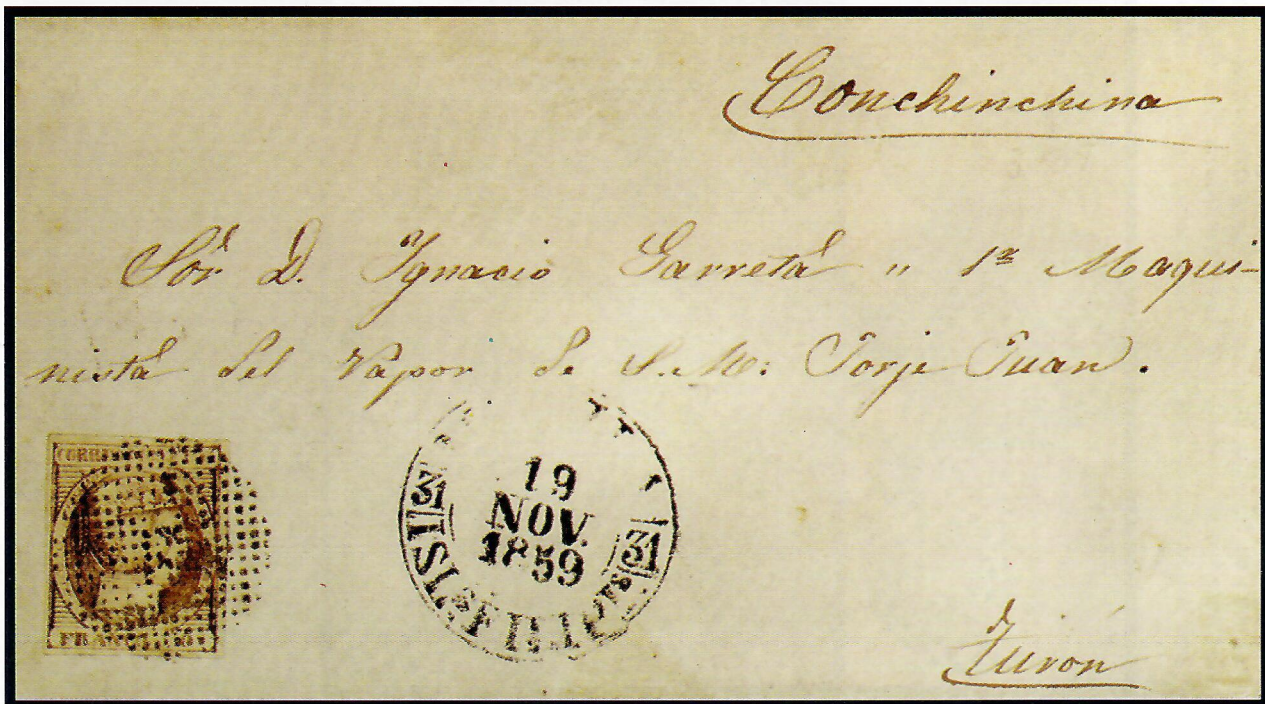 Conchinchina
Sör D. Ygnacio Garretá „ 1ª Maqui-
nista del Vapor de S. M: Jorje Juan.
CORR
FRAN
19
NOV.
1859
31
31
ISLs FILI
Turón